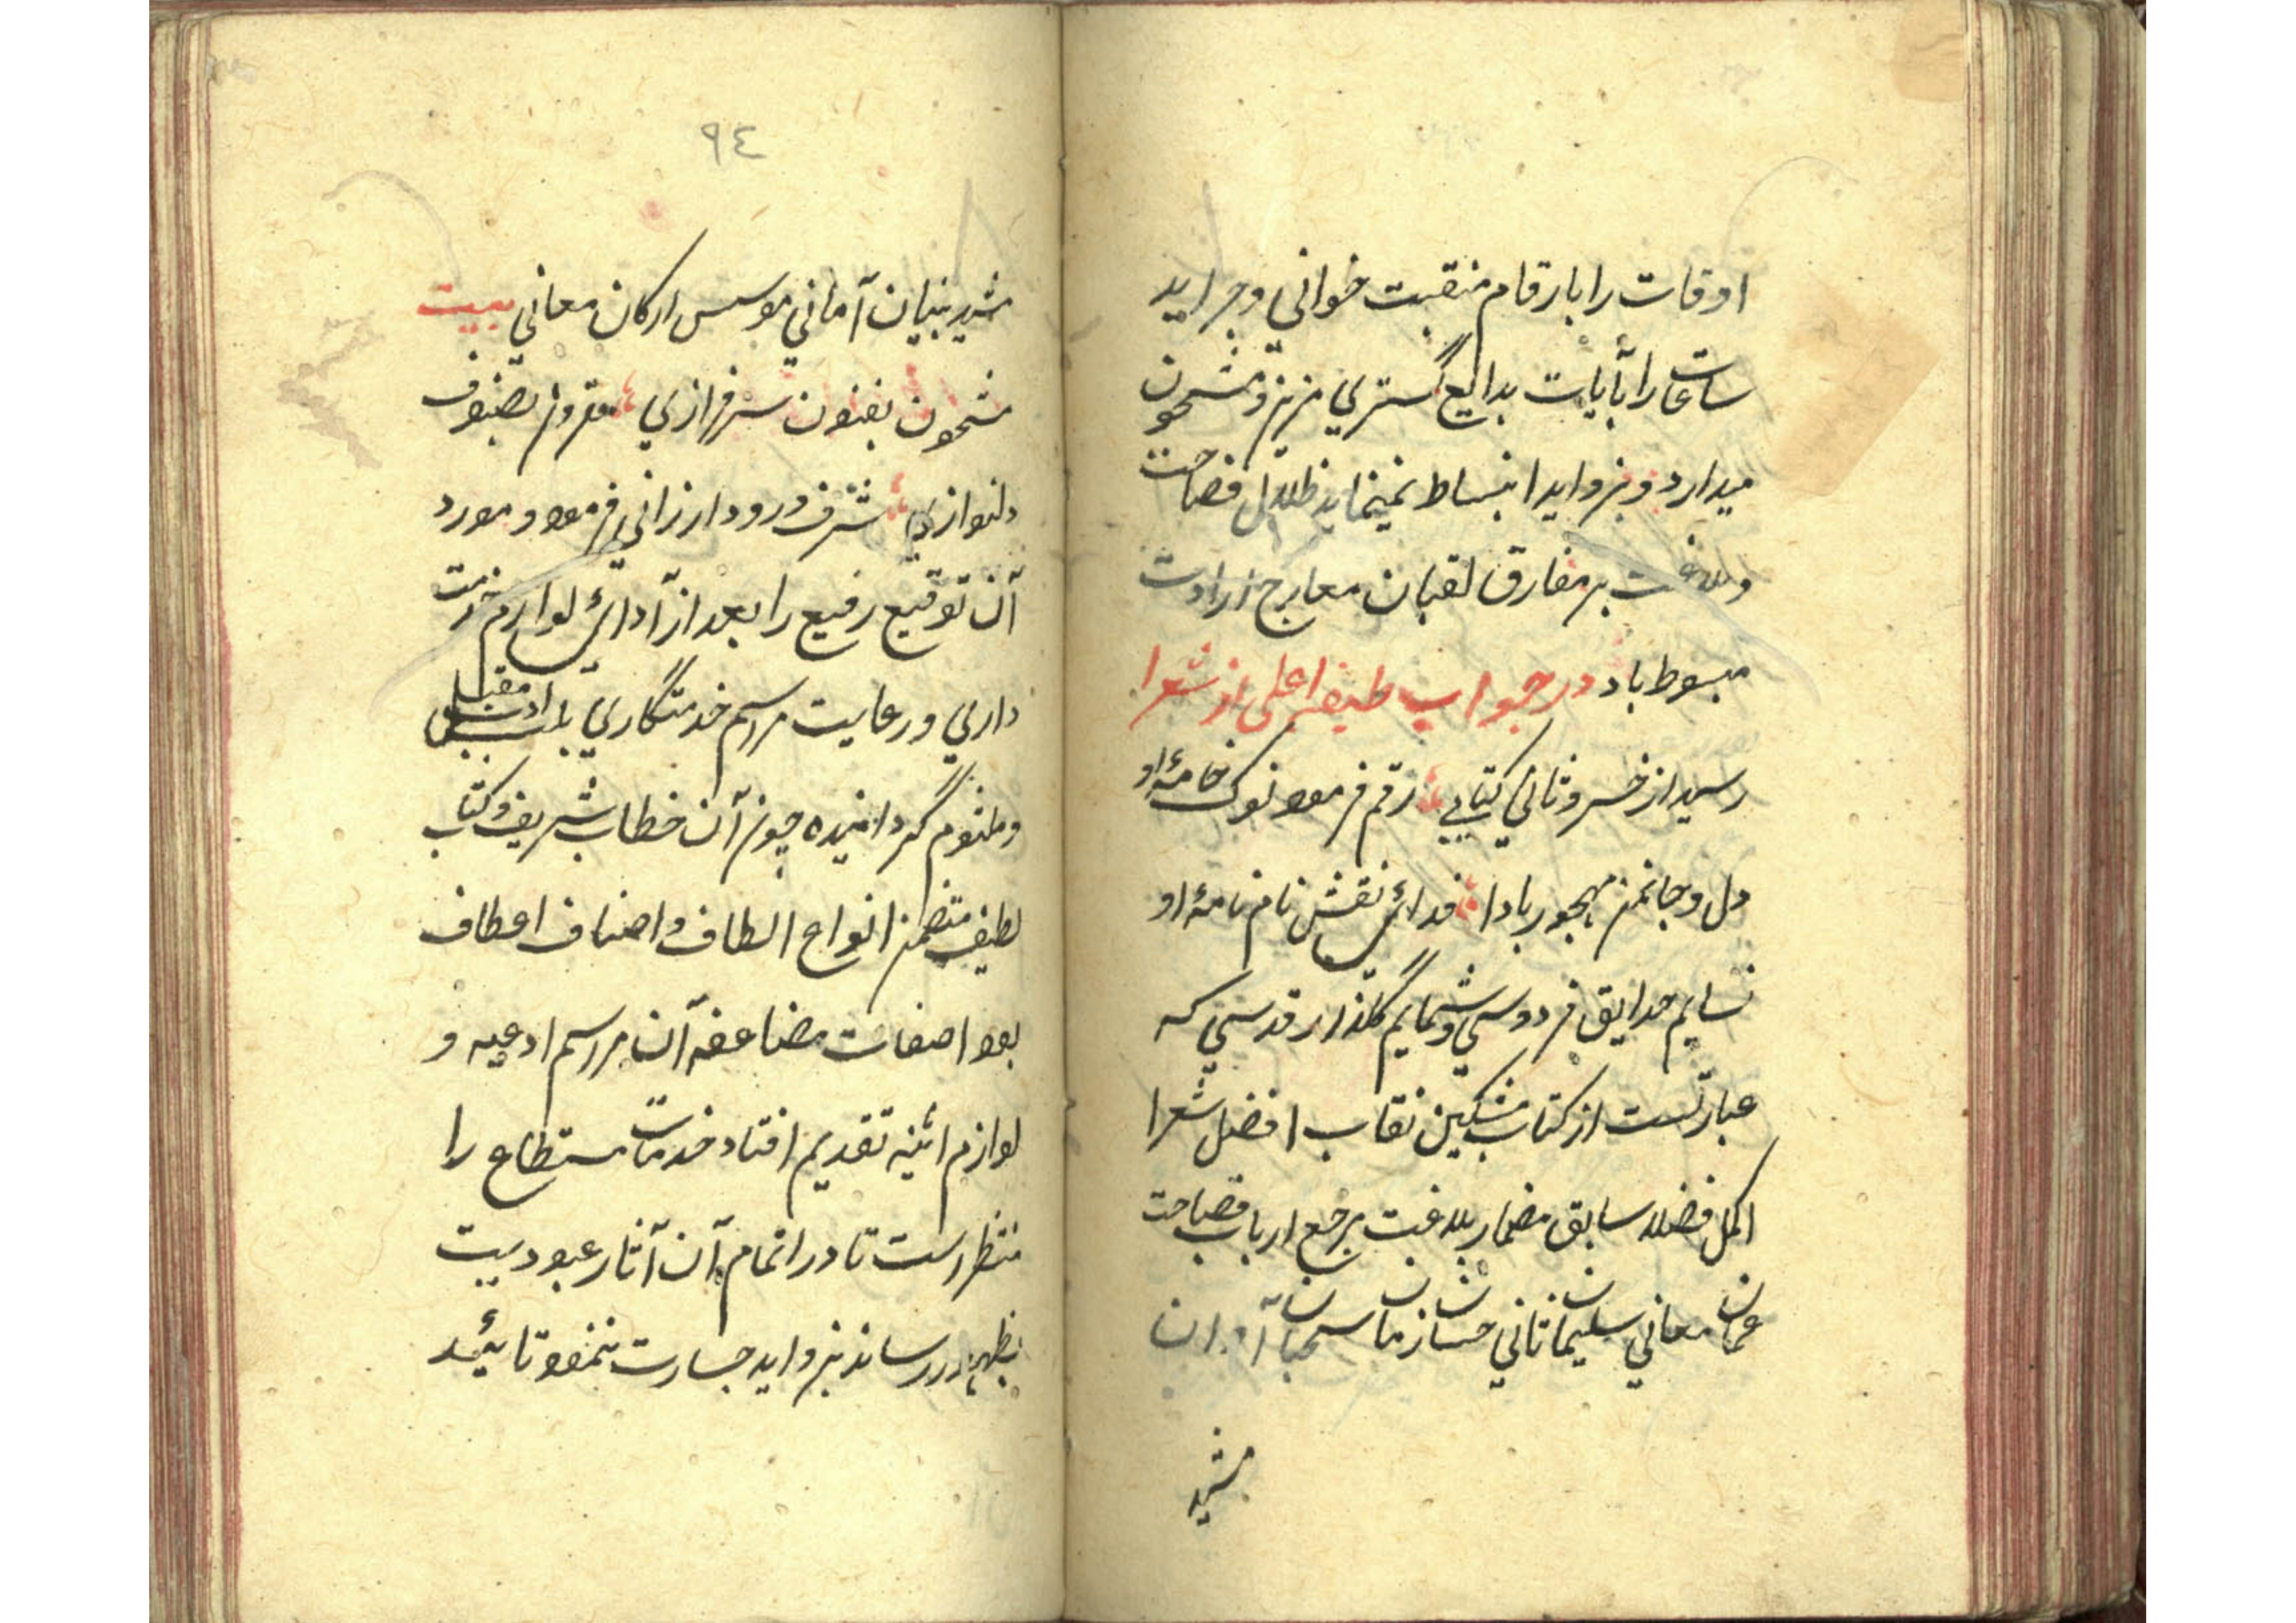 اوقات را بارقام منقبت خوانی و جراید
ساعات را بآیات بدایع گستری مزین و مشحون
میدارد و بزواید انبساط نمینماید ظلال فصاحت
وبلاغت بر مفارق لقبان معارج ارادت
مبسوط باد در جواب طبقه اعلی از شعرا
رسید از خسرو ثانی کتابی رقم فرموده نوک خامهٔ او
دل و جانم مهجور بادا فدائی نقش نام نامهٔ او
نسایم حدایق فردوسی و شمایم گلزار قدسی که
عبارتست از کتاب مشکین نقاب افضل شعرا
اکمل فضلا سابق مضمار بلاغت مرجع ارباب فصاحت
عمان معانی سلیمان ثانی حسان زمان سحبان آوان
مشید
٩٤
مشید بنیان آمانی موسس ارکان معانی بیت
مشحون بفنون سرفرازی مقرون بصنوف
دلنوازی شرف ورود ارزانی فرموده و مورد
آن توقیع رفیع را بعد از آدائی لوازم حرمت
داری و رعایت مراسم خدمتگاری بلب ادب مقبل
و ملثوم گردانیده چون آن خطاب شریف و کتاب
لطیف متضمن انواع الطاف و اصناف اعطاف
بود اضعاف مضاعفه آن مراسم ادعیه و
لوازم اثنیه تقدیم افتاد خدمات مستطاع را
منتظر است تا در اتمام آن آثار عبودیت
بظهور رساند بزواید جسارت ننمود تائید